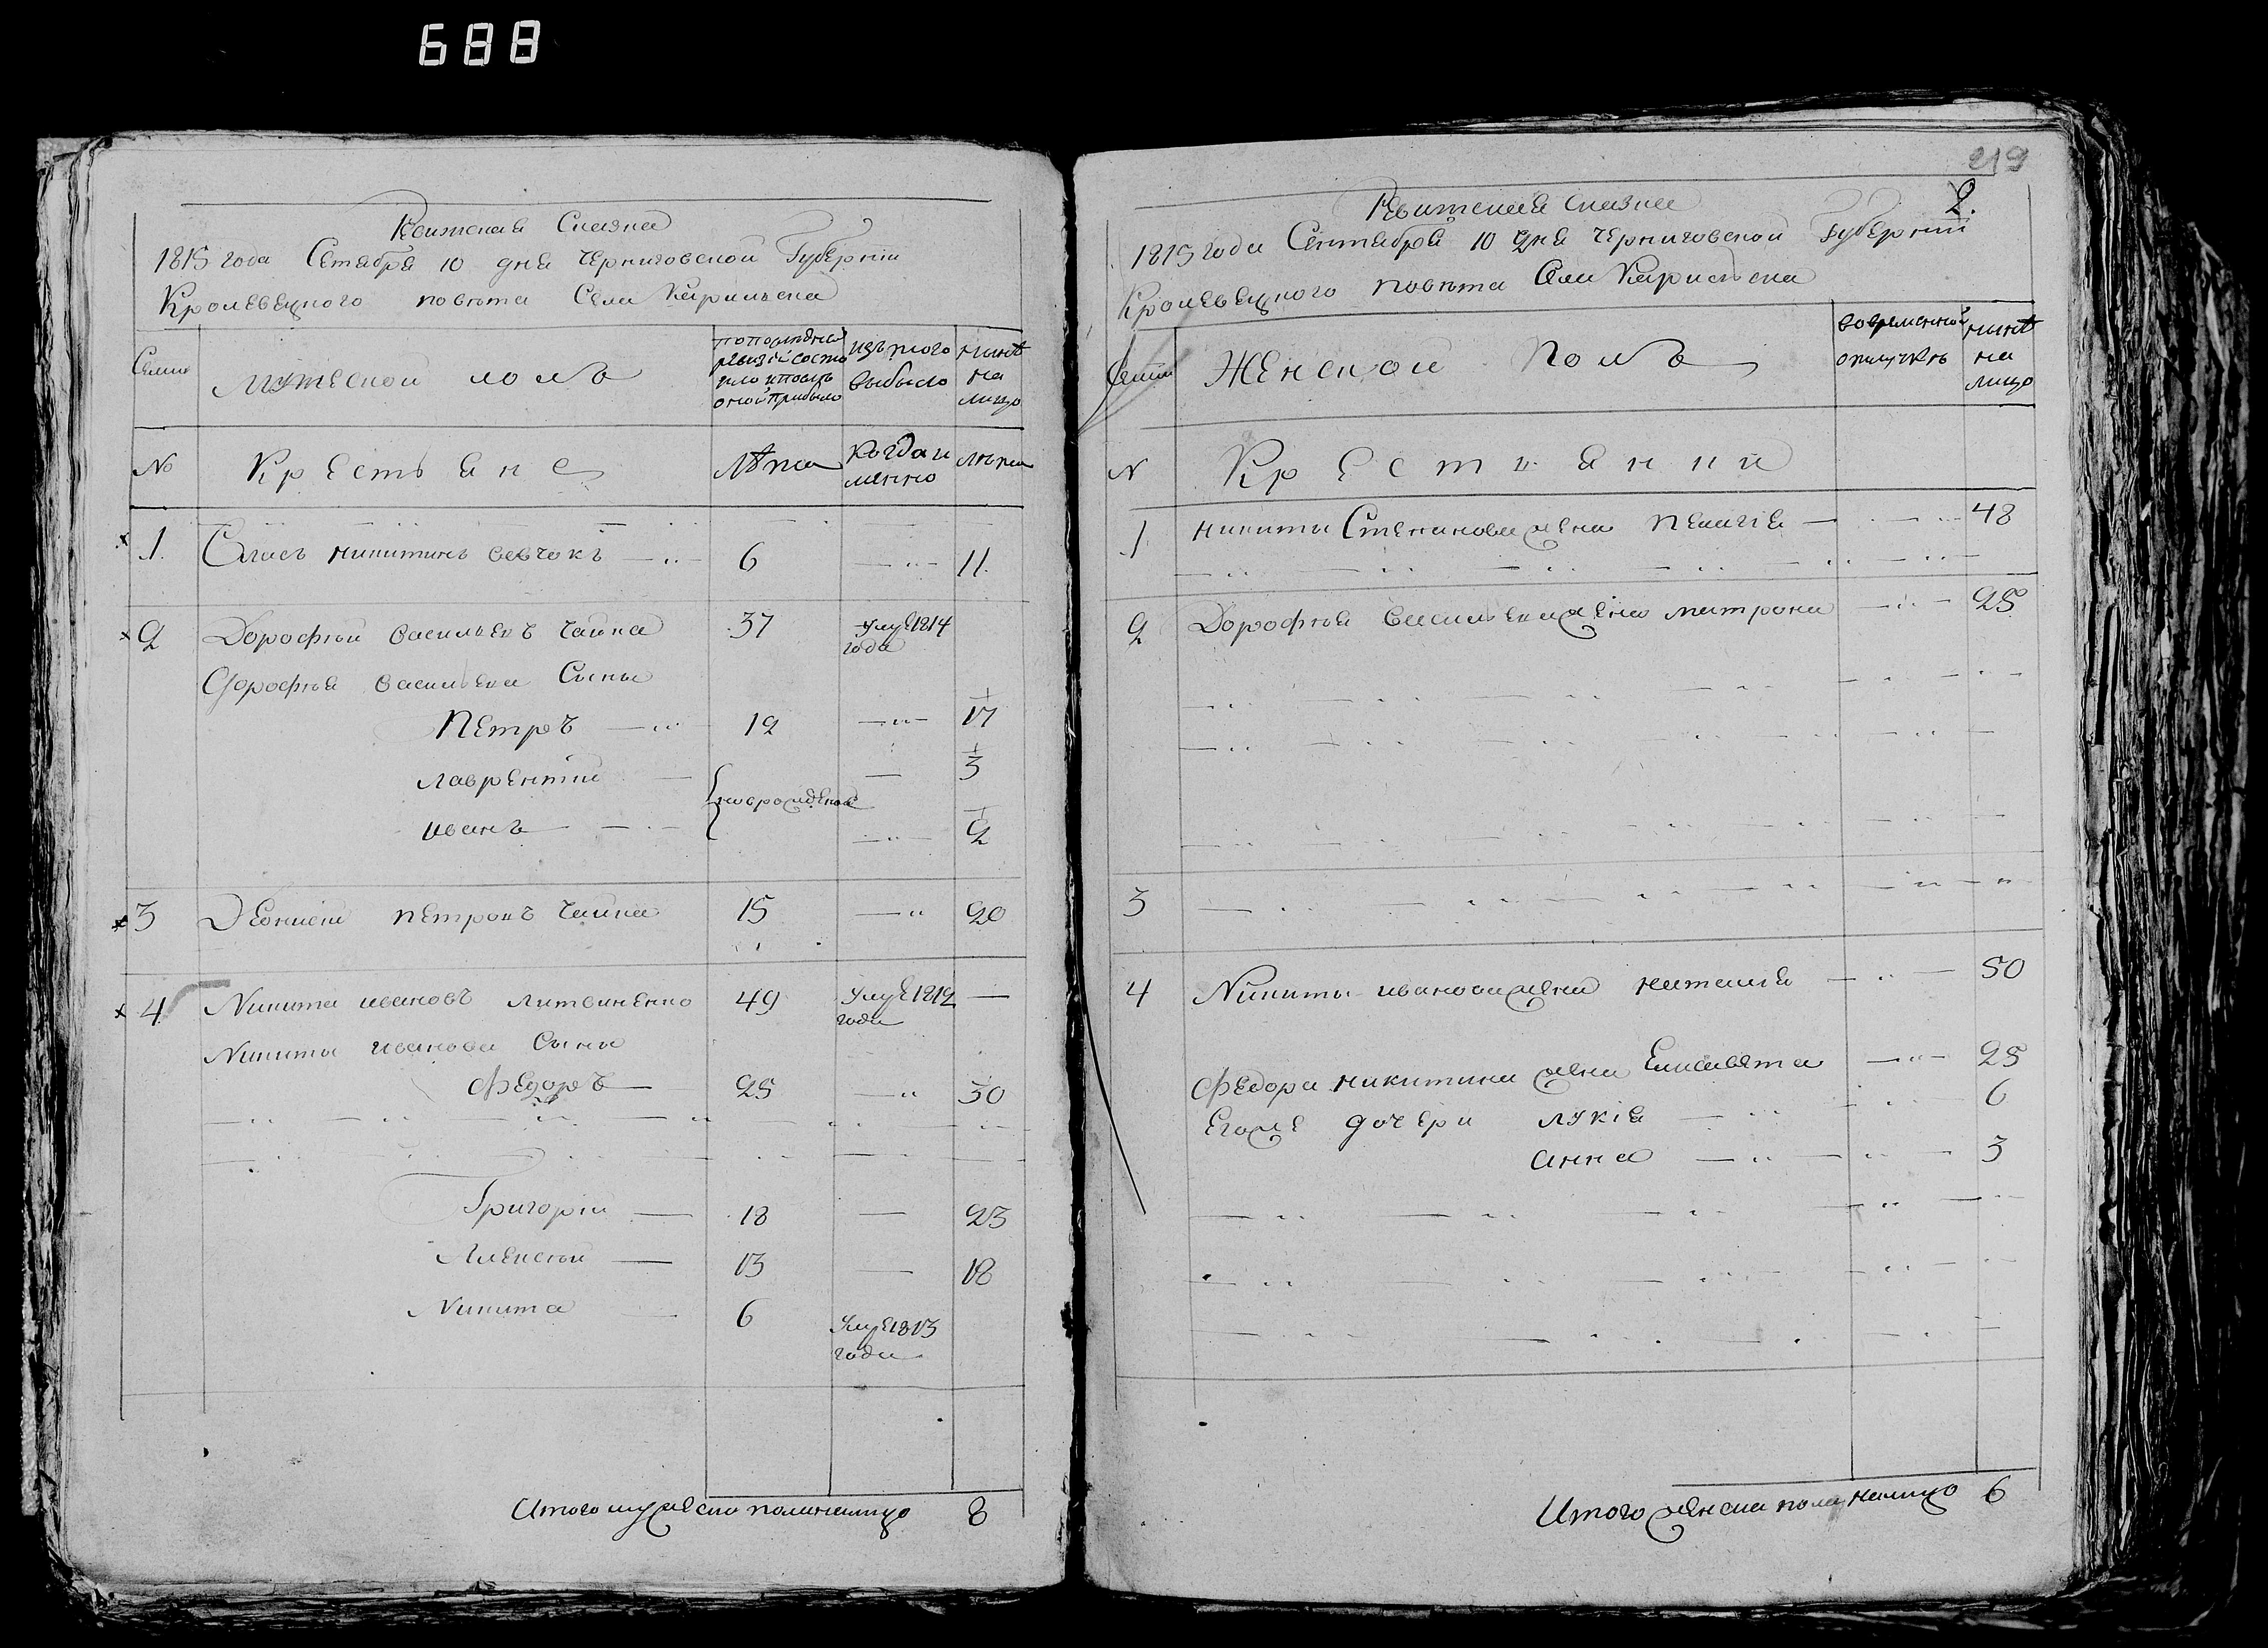 688
Ревижская Сказка
1815 года Сетября 10 дня Черниговской Губернии
Кролевецкого повета Села Кирилвска
Семии
мужеской полъ
по последней ревизии состояло и после оной прибыло
изъ того выбыло
нынѣ на лицо
№
Крестьяне
Лѣта
Когда именно
лѣта
1. Власъ Никитинъ Вовчокъ 6 11.
2 Дорофей Васильевъ Чайка 37 Умре 1814 года
Дорофея Васильева Сыны
Петръ 12 17
Лаврентий 3
новорожденые
Иванъ 2
3 Деонисий Петровъ Чайка 15 20
4 Никита Ивановъ Литвиненко 49 Умре 1812 года
Никиты Иванова Сыны
Федоръ 25 30
Григорий 18 23
Алексей 13 18
Никита 6 Умре 1813 года
Итого мужеска пола налицо 8
219
2.
Ревижская сказка
1815 года Сентября 10 дня Черниговской Губернии
Кролевецкого повета Села Кирилвска
Семии
Женской полъ
во временной отлучкѣ
нынѣ на лицо
N
Крестьянки
1 Никиты Степанова жена Пелагея 48
2 Дорофея Васильева жена Матрона 25
3
4 Никиты Иванова жена Наталия 50
Федора Никитина жена Елисавета 25
Егоже дочери Лукия 6
Анна 3
Итого женска пола налицо 6